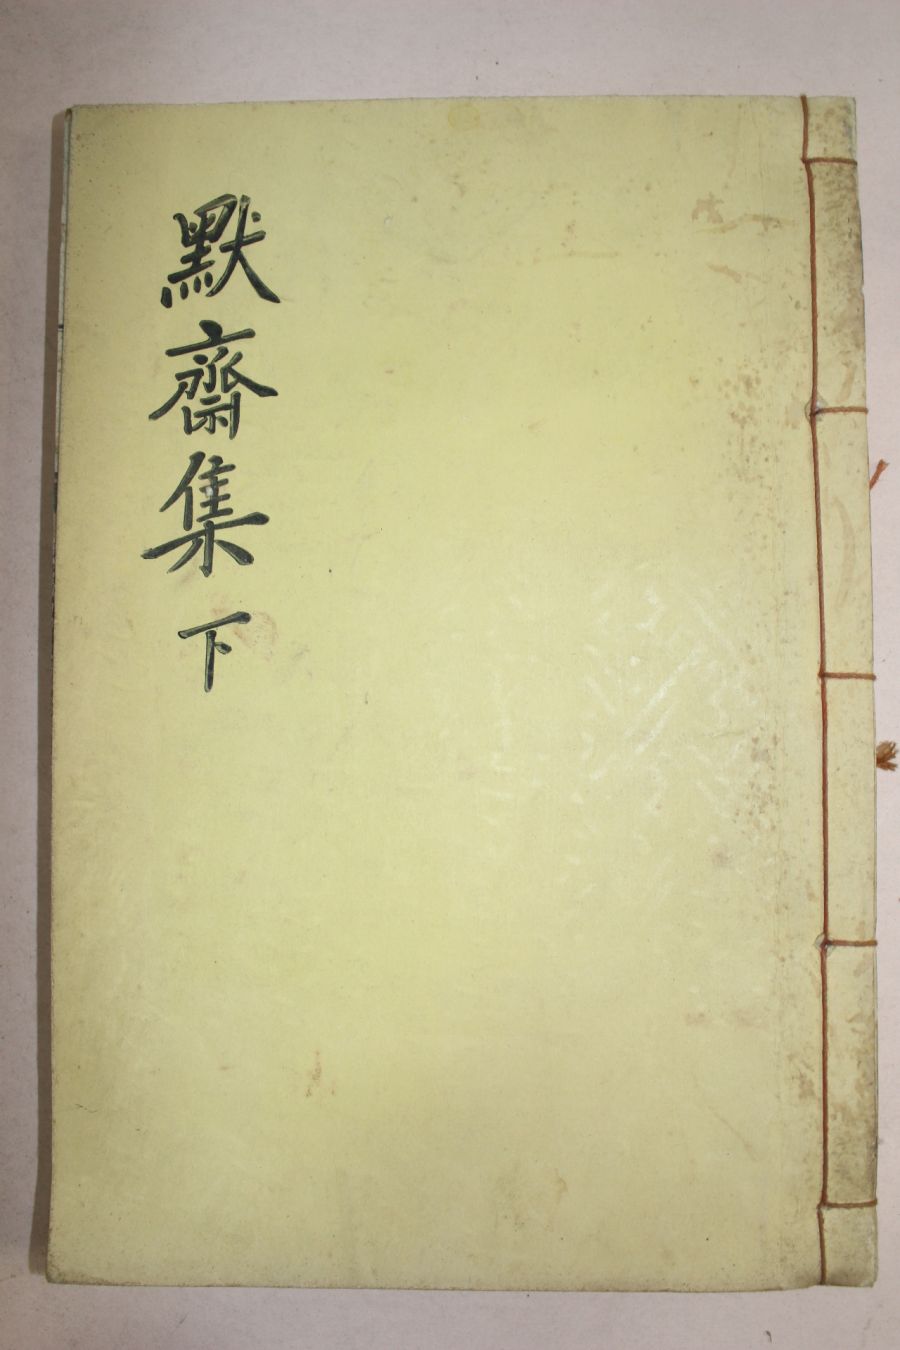 默齋集 下